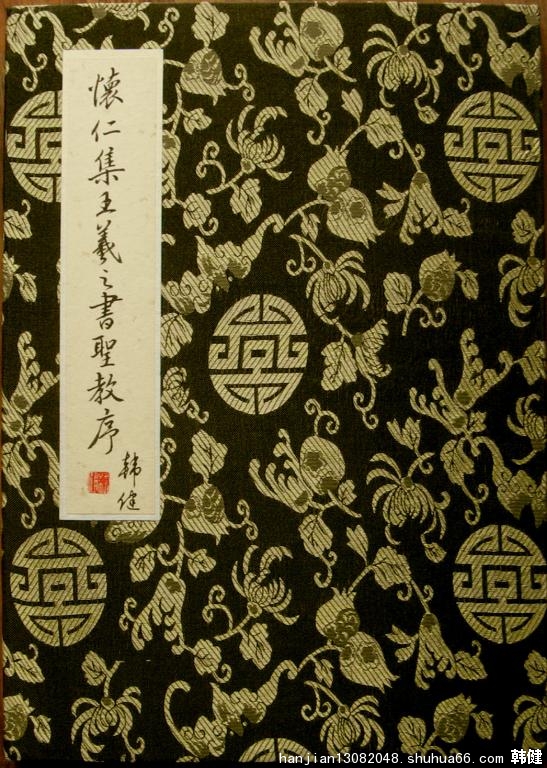 懷仁集王羲之書聖教序
韩健
hanjian13082048.shuhua66.com 韩健